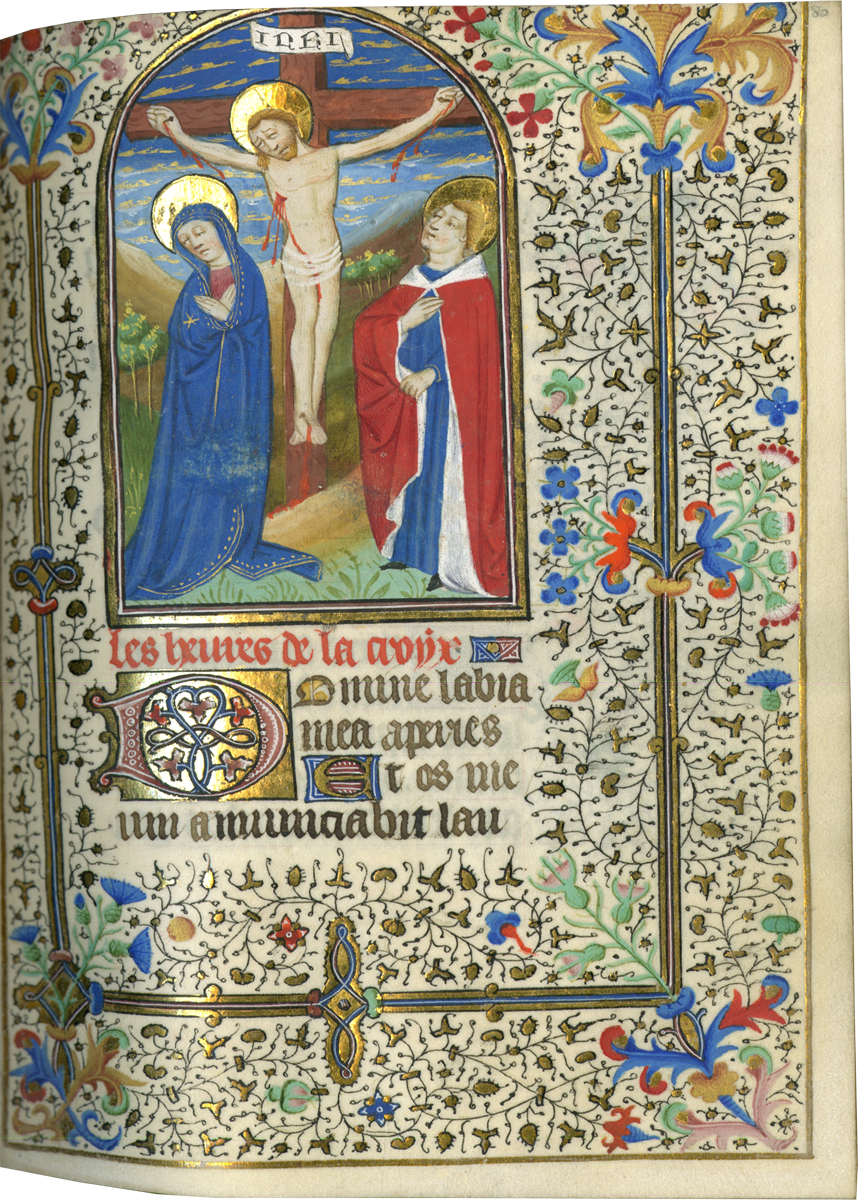 INRI
les heures de la croix
Domine labia
mea aperies
Et os me
um annunciabit lau